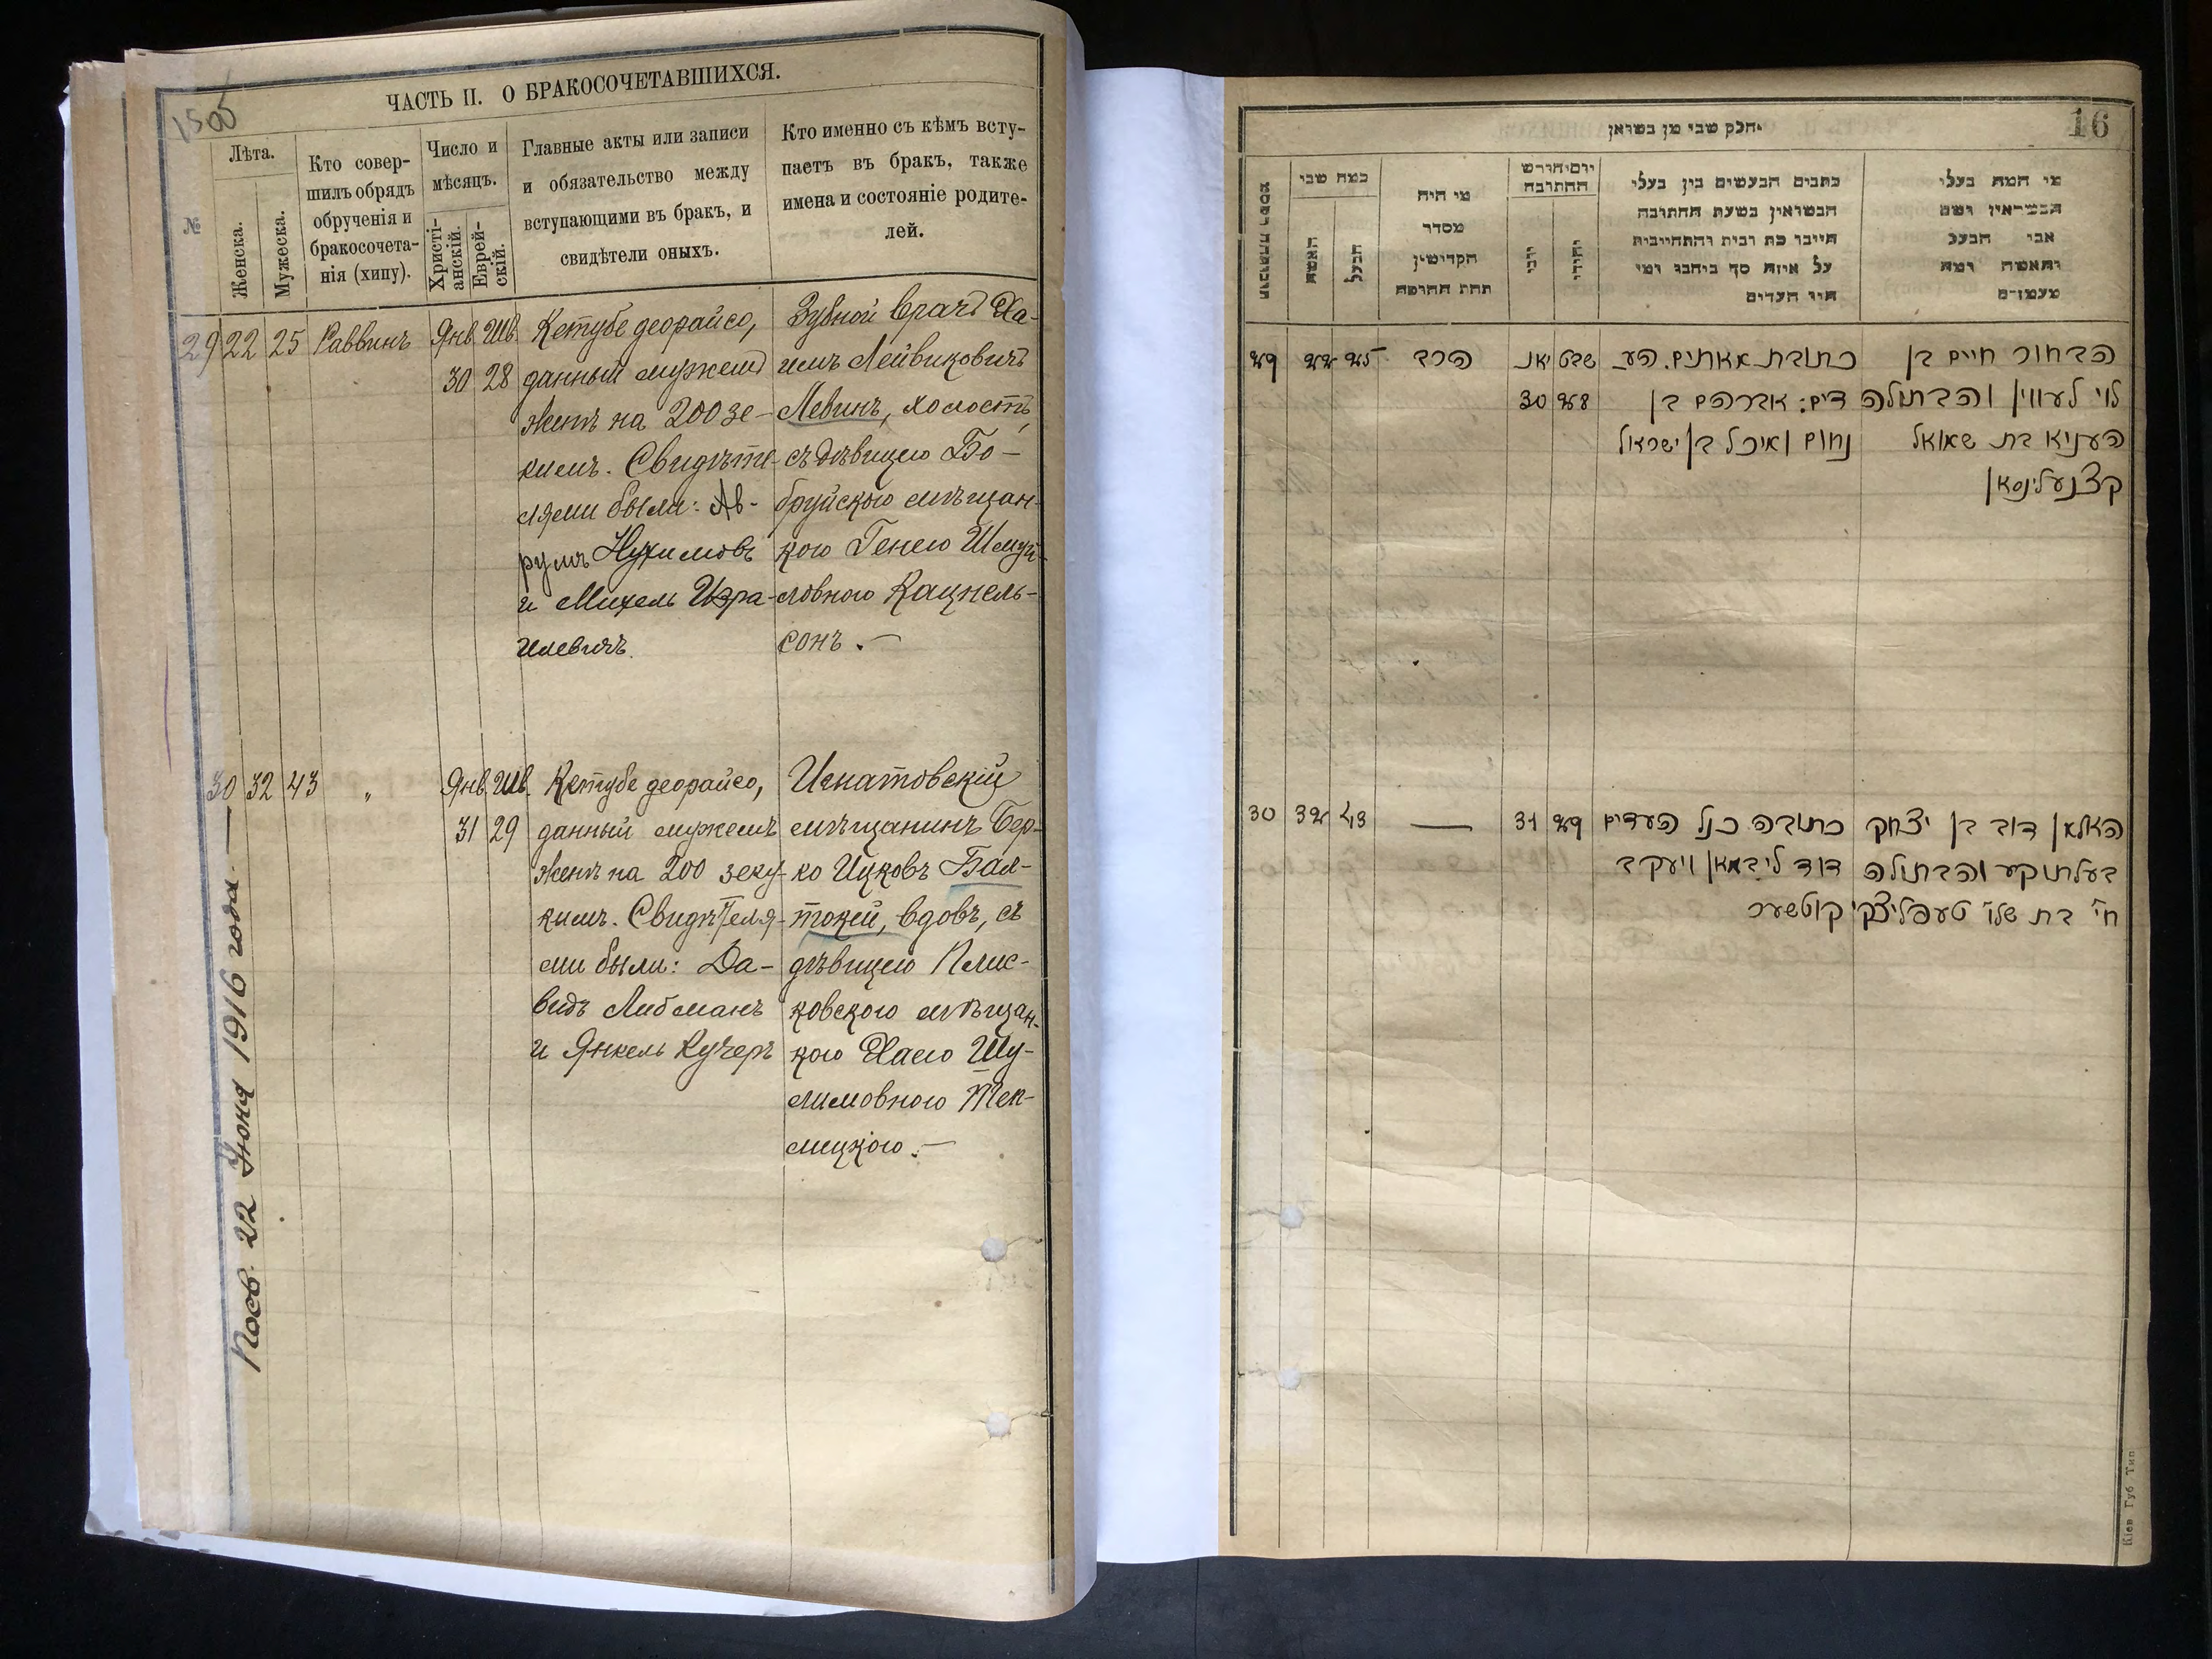 1505
ЧАСТЬ II. О БРАКОСОЧЕТАВШИХСЯ.
№
Лѣта.
Женска.
Мужеска.
Кто совер-
шилъ обрядъ
обрученія и
бракосочета-
нія (хипу).
Число и
мѣсяцъ.
Христі-
анскій.
Еврей-
скій.
Главные акты или записи
и обязательство между
вступающими въ бракъ, и
свидѣтели оныхъ.
Кто именно съ кѣмъ всту-
паетъ въ бракъ, также
имена и состояніе родите-
лей.
29 22 25 Раввинъ Янв Шв
30 28
Кетубе деорайсо,
данный мужемъ
женѣ на 200 зе-
кимъ. Свидѣте-
лями были: Ав-
румъ Нухимовъ
и Михель Изра-
илевичъ.
Зубной врачъ Ха-
имъ Лейвиковичъ
Левинъ, холостъ,
съ дѣвицею Бо-
бруйскою мѣщан-
кою Генею Шмуй-
ловною Кацнель-
сонъ.—
30 32 43 „ Янв. Шв.
31 29
Кетубе деорайсо,
данный мужемъ
женѣ на 200 зеку-
кимъ. Свидѣтеля-
ми были: Да-
видъ Либманъ
и Янкель Кучеръ
Игнатовскій
мѣщанинъ Бер-
ко Ицковъ Бал-
токей, вдовъ, съ
дѣвицею Плис-
ковскою мѣщан-
кою Хаею Шу-
лимовною Теп-
лицкою.—
Посв. 22 Іюня 1916 года.
16
חלק שני מן נשואן
כמה שני
האשה
הבעל
מי היה
מסדר
הקדושין
תחת החופה
יום וחודש
החתונה
יוני
יהודי
כתבים הנעשים בין בעלי
הנשואין בשעת החתונה
על איזה סך ביחבו ומי
היו העדים
מי המה בעלי
הנשואין ושם
אבי הבעל
והאשה ומה
מעמדם
29 22 25 הרב יאנ שבט
30 28
כתובת מאתים. הע
דים: אברהם בן
נחום ומיכל בן ישראל
הבחור חיים בן
לוי לעווין והבתולה
העניא בת שמואל
קצנעלינסאן
30 32 43 — 31 29
כתובה כנל העדים
דוד ליבמאן ויעקב
קוטשער
האלמן דוב בן יצחק
בעלתוקע והבתולה
חי' בת שלו' טעפליצקי
Кіев Губ Тип